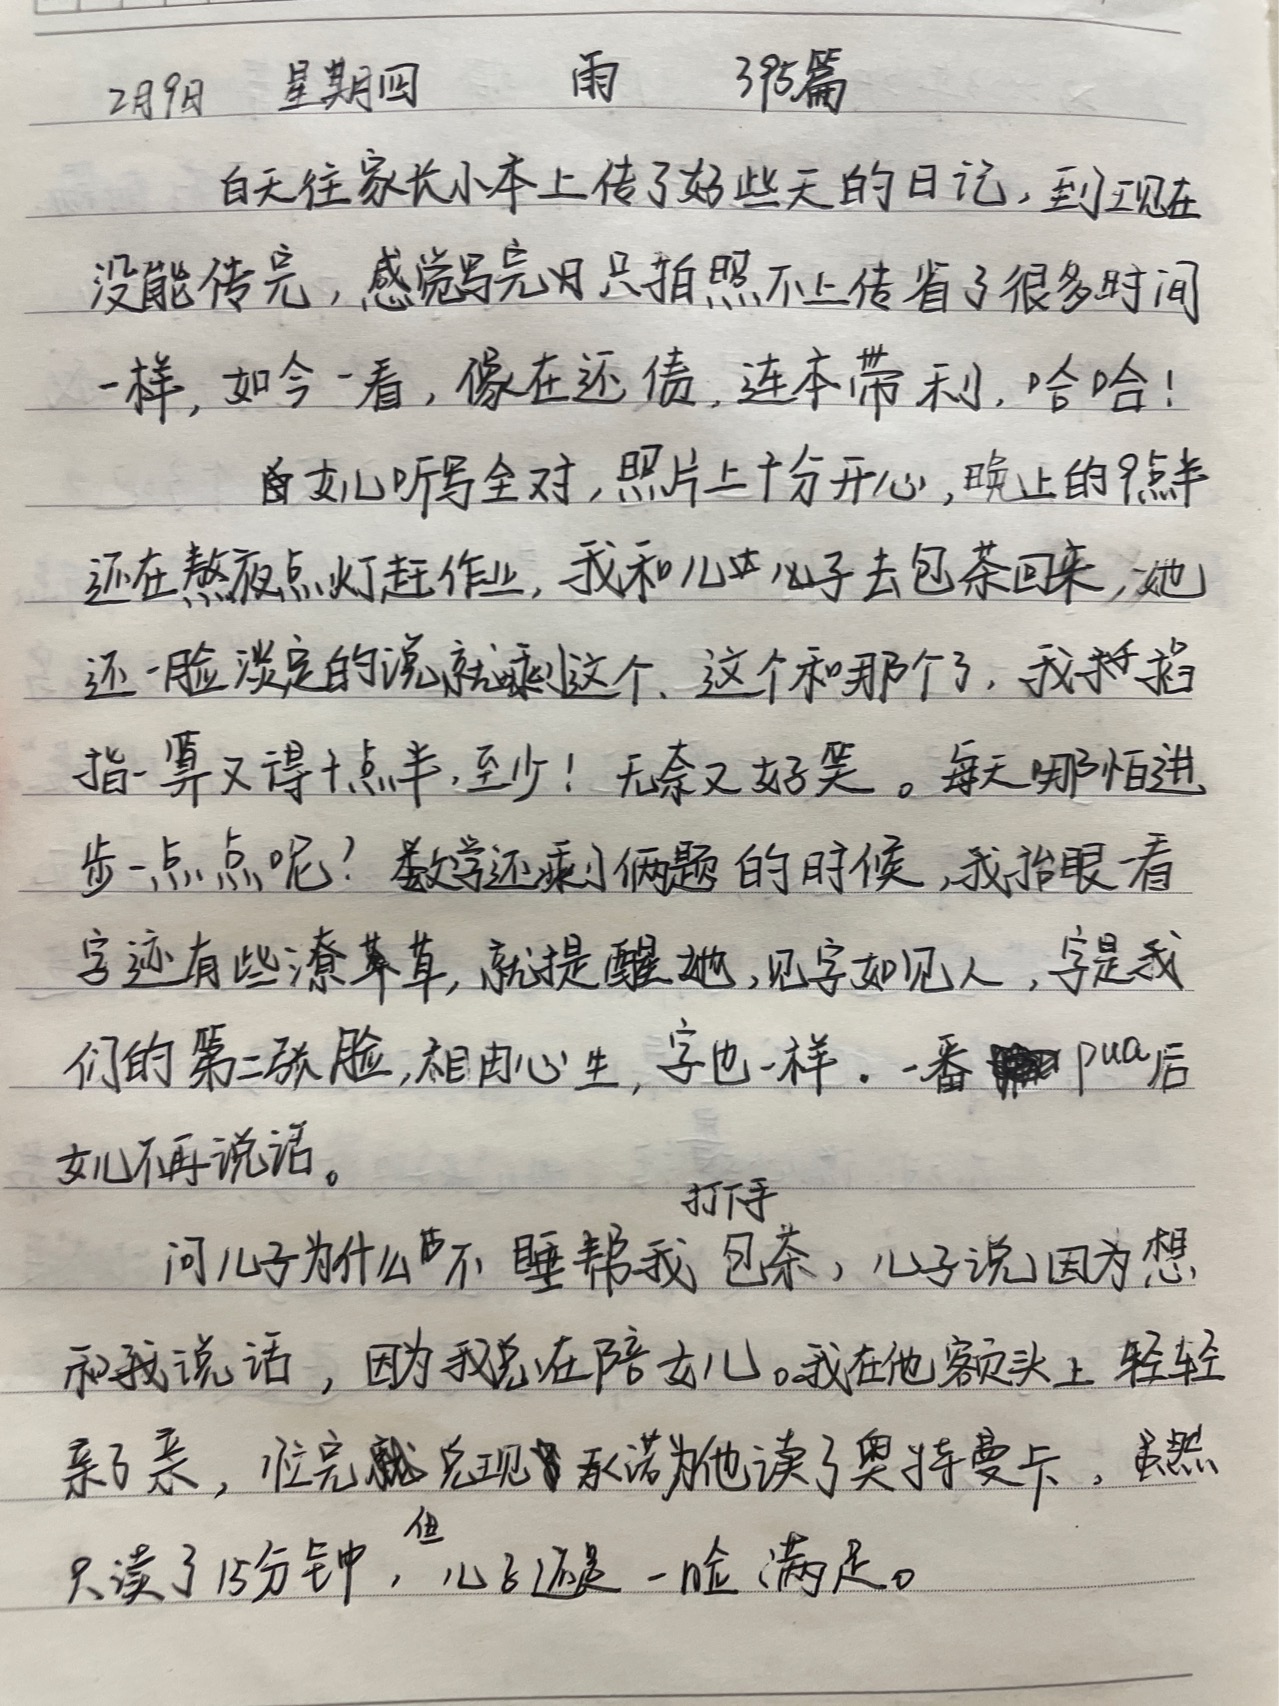 2月9日 星期四 雨 395篇
白天往家长小本上传了好些天的日记，到现在
没能传完，感觉写完只拍照不上传省了很多时间
一样，如今一看，像在还债，连本带利，哈哈！
女儿听写全对，照片上十分开心，晚上的9点半
还在熬夜点灯赶作业，我和儿子去包茶回来，她
还一脸淡定的说就剩这个、这个和那个了，我掐
指一算又得十点半，至少！无奈又好笑。每天哪怕进
步一点点呢？数学还剩俩题的时候，我抬眼一看
字迹有些潦草，就提醒她，见字如见人，字是我
们的第二张脸，相由心生，字也一样。一番pua后
女儿不再说话。
打下手
问儿子为什么不睡帮我包茶，儿子说因为想
和我说话，因为我总在陪女儿。我在他额头上轻轻
亲了亲，忙完兑现承诺为他读了奥特曼卡，虽然
但
只读了15分钟，儿子还是一脸满足。